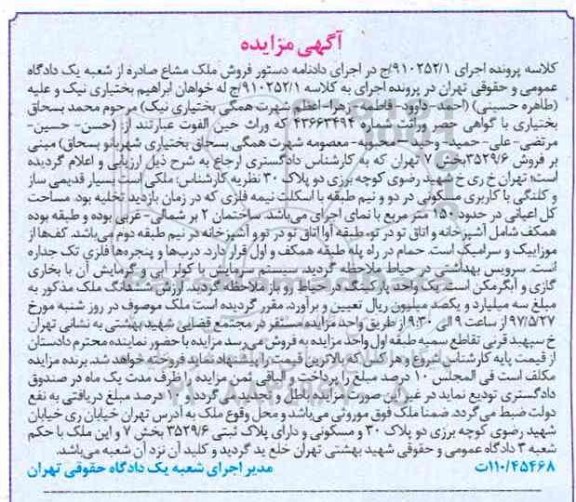 آگهی مزایده
کلاسه پرونده اجرای ۹۱۰۲۵۲/۱/ج در اجرای دادنامه دستور فروش ملک مشاع صادره از شعبه یک دادگاه
عمومی و حقوقی تهران در پرونده اجرای به کلاسه ۹۱۰۲۵۲/۱/ج له خواهان ابراهیم بختیاری نیک و علیه
(طاهره حسینی) (احمد-داوود-فاطمه-زهرا-اعظم شهرت همگی بختیاری نیک) مرحوم محمد بسحاق
بختیاری با گواهی حصر وراثت شماره ۴۳۶۶۳۴۹۴ که وراث حین الفوت عبارتند از: (حسن- حسین-
مرتضی-علی-حمید- وحید -محبوبه- معصومه شهرت همگی بسحاق بختیاری شهربانو بسحاق) مبنی
بر فروش ۳۵۲۹/۶بخش ۷ تهران که به کارشناس دادگستری ارجاع به شرح ذیل ارزیابی و اعلام گردیده
است؛ تهران خ ری خ شهید رضوی کوچه برزی دو پلاک ۳۰ نظریه کارشناس: ملکی است بسیار قدیمی ساز
و کلنگی با کاربری مسکونی در دو و نیم طبقه با اسکلت نیمه فلزی که در زمان بازدید تخلیه بود. مساحت
کل اعیانی در حدود ۱۵۰ متر مربع با نمای اجرای می‌باشد. ساختمان ۲ بر شمالی-غربی بوده و طبقه بوده
همکف شامل آشپزخانه و اتاق تو در تو، طبقه اول اتاق تو در تو و آشپزخانه در نیم طبقه دوم می‌باشد. کف‌ها از
موزاییک و سرامیک است. حمام در راه پله طبقه همکف و اول قرار دارد. درب‌ها و پنجره‌ها فلزی تک جداره
است. سرویس بهداشتی در حیاط ملاحظه گردید. سیستم سرمایش با کولر آبی و گرمایش آن با بخاری
گازی و آبگرمکن است. یک واحد پارکینگ در حیاط رو باز ملاحظه گردید. ارزش ششدانگ ملک مذکور به
مبلغ سه میلیارد و یکصد میلیون ریال تعیین و برآورد. مقرر گردیده است ملک موصوف در روز شنبه مورخ
۹۷/۵/۲۷ از ساعت ۹ الی ۹:۳۰ از طریق واحد مزایده مستقر در مجتمع قضایی شهید بهشتی به نشانی تهران
خ سپهبد قرنی تقاطع سمیه طبقه اول واحد مزایده به فروش می‌رسد مزایده با حضور نماینده محترم دادستان
از قیمت پایه کارشناس شروع و هر کس که بالاترین قیمت را پیشنهاد نماید فروخته خواهد شد. برنده مزایده
مکلف است فی المجلس ۱۰ درصد مبلغ را پرداخت و الباقی ثمن مزایده را ظرف مدت یک ماه در صندوق
دادگستری تودیع نماید در غیر این صورت مزایده باطل و تجدید می‌گردد و ۱۰ درصد مبلغ دریافتی به نفع
دولت ضبط می‌گردد. ضمنا ملک فوق موروثی می‌باشد و محل وقوع ملک به آدرس تهران خیابان ری خیابان
شهید رضوی کوچه برزی دو پلاک ۳۰ و مسکونی و دارای پلاک ثبتی ۳۵۲۹/۶ بخش ۷ و این ملک با حکم
شعبه ۳ دادگاه عمومی و حقوقی شهید بهشتی تهران خلع ید گردید و کلید آن نزد آن شعبه می‌باشد.
۱۱۰/۴۵۴۶۸ت مدیر اجرای شعبه یک دادگاه حقوقی تهران